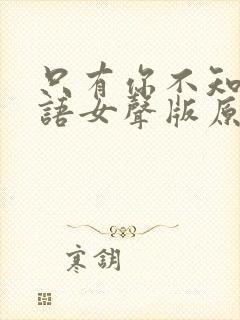 只有你不知
語女聲版原
寒鈅